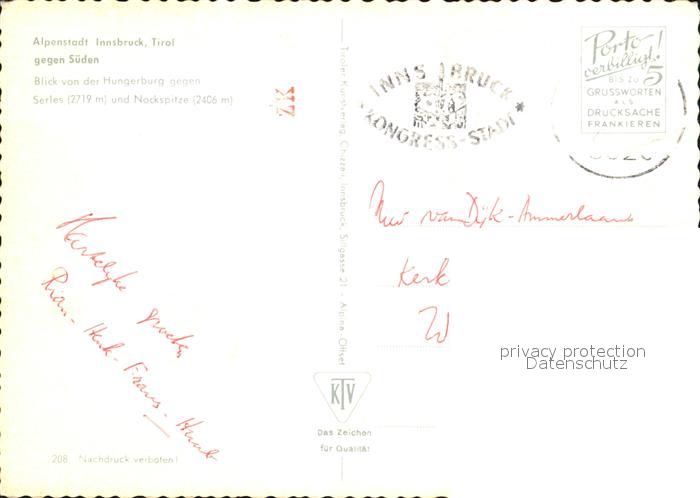 Alpenstadt Innsbruck, Tirol
gegen Süden
Blick von der Hungerburg gegen
Serles (2719 m) und Nockspitze (2406 m)
ZK
INNSBRUCK
* KONGRESS-STADT *
Porto
verbilligt!
BIS ZU 5
GRUSSWORTEN
ALS
DRUCKSACHE
FRANKIEREN
6020
Tiroler Kunstverlag, Chizzali, Innsbruck, Sillgasse 21 - Alpina-Offset
van Dijk-Ammerlaan
Kerk
Hartelijke groeten
Rian - Henk - Frans - Huub
privacy protection
Datenschutz
KTV
Das Zeichen
für Qualität
208 Nachdruck verboten!